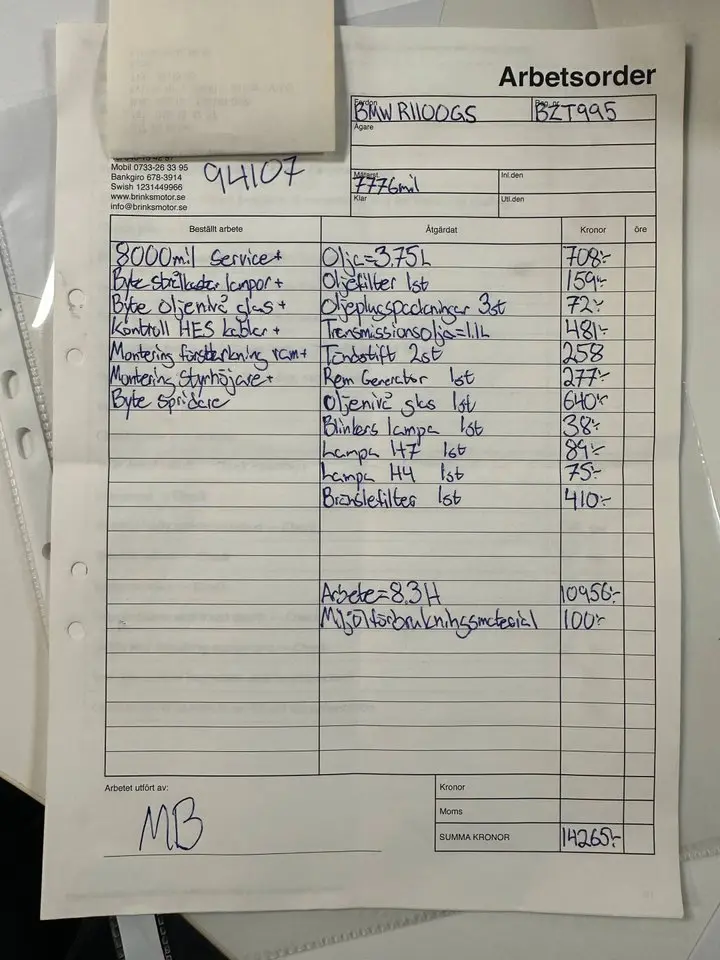 Arbetsorder
Fordon
BMW R1100GS
Reg. nr
BZT995
Ägare
Mobil 0733-26 33 95
Bankgiro 678-3914
Swish 1231449966
www.brinksmotor.se
info@brinksmotor.se
94107
Mätarst.
7776mil
Inl.den
Klar
Utl.den
Beställt arbete Åtgärdat Kronor öre
8000mil Service+ Olja=3,75L 708:-
Byte strålkastar lampor+ Oljefilter 1st 159:-
Byte Oljenivå glas+ Oljeplugspackningar 3st 72:-
Kontroll HES kablar+ Transmissionsolja=1.1L 481:-
Montering förstärkning ram+ Tändstift 2st 258
Montering Styrhöjare+ Rem Generator 1st 277:-
Byte spridare Oljenivå glas 1st 640:-
Blinkers lampa 1st 38:-
Lampa H7 1st 89:-
Lampa H4 1st 75:-
Bränslefilter 1st 410:-
Arbete=8,3H 10956:-
Miljö/förbrukningsmaterial 100:-
Arbetet utfört av:
MB
Kronor
Moms
SUMMA KRONOR 14265:-